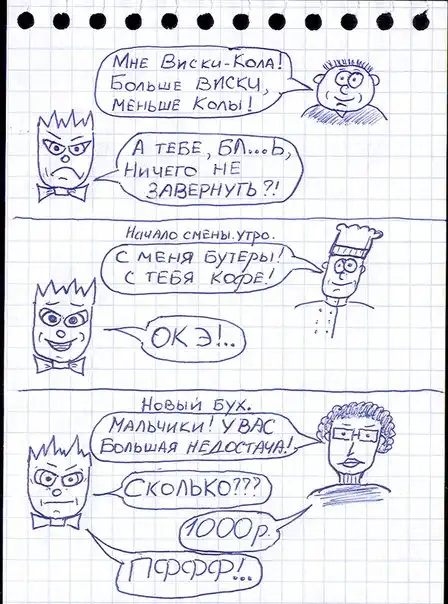 Мне Виски-Кола!
Больше виски,
меньше Колы!
А тебе, бл...ь,
ничего не
завернуть?!
Начало смены. утро.
С меня бутеры!
С тебя кофе!
ОК Э!..
Новый бух.
Мальчики! У вас
большая недостача!
Сколько???
1000 р.
Пффф!..